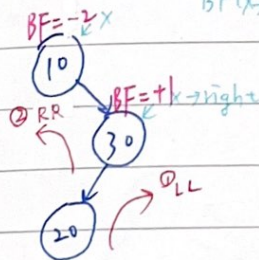 BF=-2 x
10
BF=+1 x→right
② RR
30
① LL
20